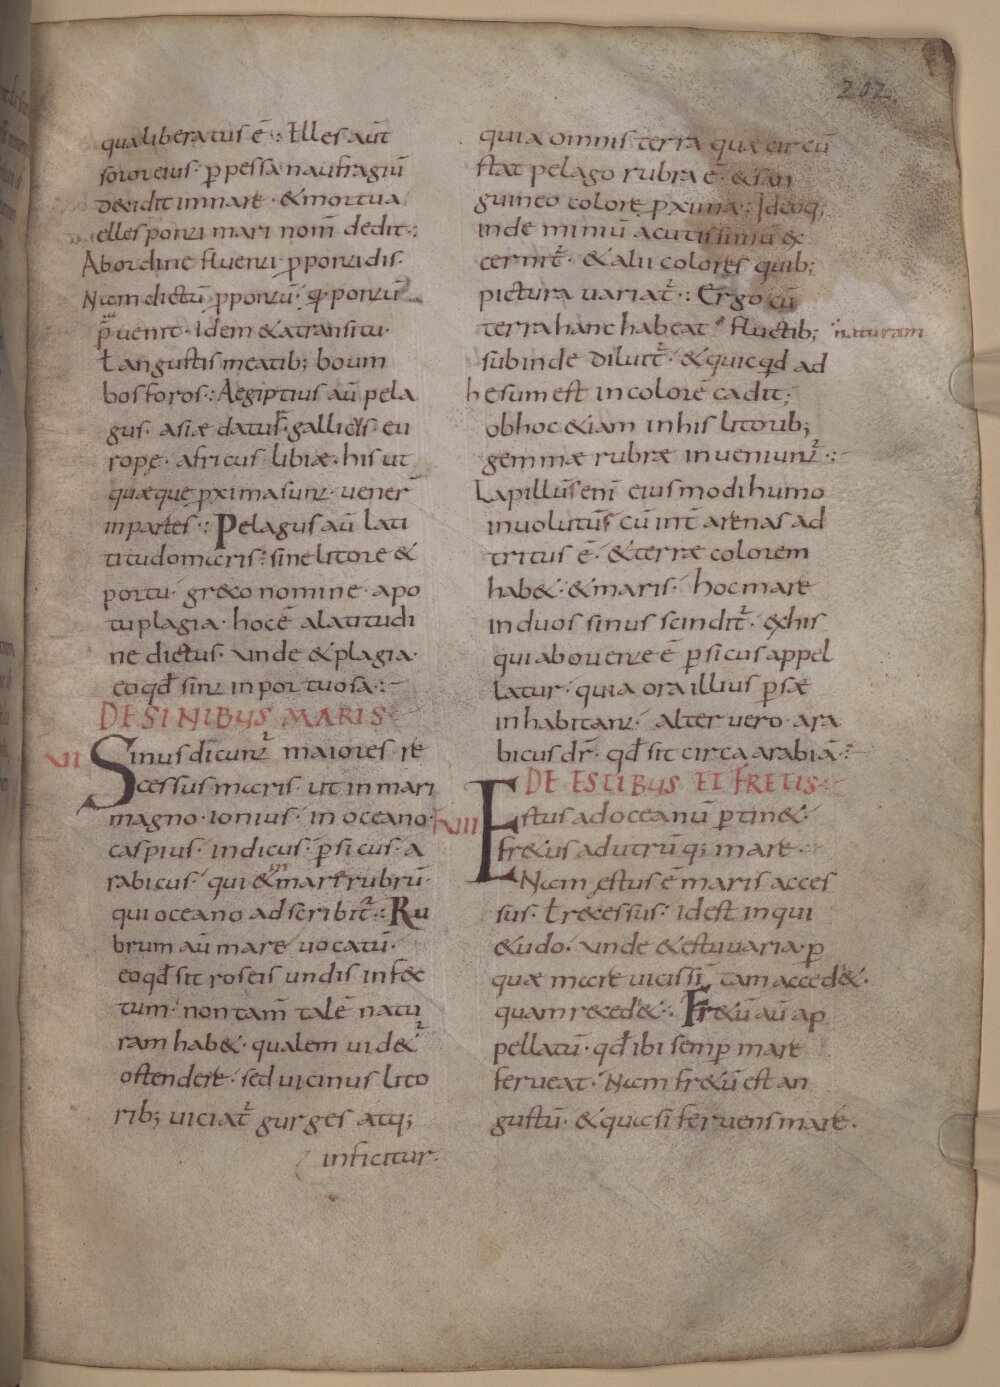 202
qua liberatus ē ·:· Ełłes aūt
soror eius · ꝑpessa naufragiū
decidit in mare · & mortua
ellesponti mari nom̄ dedit ·:
Abordine fluenti · ꝓpontidis ·
Nam dictū ꝓpontū · qđ pontū
p̄uenit · Idem & a transitu ·
ł angustis meatib; boum
bosforos ·: Aegiptius aū pela
gus · asiæ datus · gallicus eu
rope · africus libiæ · his ut
quæque ꝓxima sunt · uener̄
in partes ·: Pelagus aū lati
titudo maris · sine litore &
portu · greco nomine · apo
tu plagia · hoc ē a latitudi
ne dictus · unde & plagia ·
eo qđ sint inportuosa ·:
DE SINIBUS MARIS
XII Sinus dicunt̄ maiores re
cessus maris · ut in mari
magno · ionius · in oceano ·
caspius · indicus · ꝑsicus · a
rabicus · qui & mare rubrū ·
qui oceano adscribit̄ ·: Ru
brum aū mare uocatū ·
eo qđ sit roseis undis infec
tum · non tam̄ talē natu
ram hab& · qualem uidet̄
ostendere · sed uicinus lito
rib; uiciat̄ gurges atq;
inficitur ·
quia omnis terra quæ circū
stat pelago rubra ē · & san
guineo colore ꝓxima ·: Ideoq;
inde miniū acutissimū ex
cernit̄ · & alii colores quib;
pictura uariat̄ ·: Ergo cū
terra hanc habeat fluctib; naturam
subinde diluit̄ · & quicqđ ad
hesum est in colorē cadit ;
ob hoc &iam in his litorib;
gemmæ rubræ inueniunt̄ ·:
Lapillus enī eiusmodi humo
inuolutus cū int̄ arenas ad
tritus ē · & terræ colorem
hab& · & maris · hoc mare
in duos sinus scindit̄ · ex his
qui ab oriente ē ꝑsicus appel
latur · quia ora illius ꝑsæ
inhabitant · alter uero ara
bicus dr̄ · qđ sit circa arabiā ·:
DE ESTIBUS ET FRETIS
XIII Estus ad oceanū ꝑtin& ·
fr&us ad utrūq; mare ·
Nam estus ē maris acces
sus · ł recessus · id est inqui
&udo · unde & estuaria · ꝑ
quæ mare uicissī tam acced& ·
quam reced& ·: Fr&ū aū ap
pellatū · qđ ibi semꝑ mare
ferueat · Nam fr&ū est an
gustū · & quasi feruens mare ·